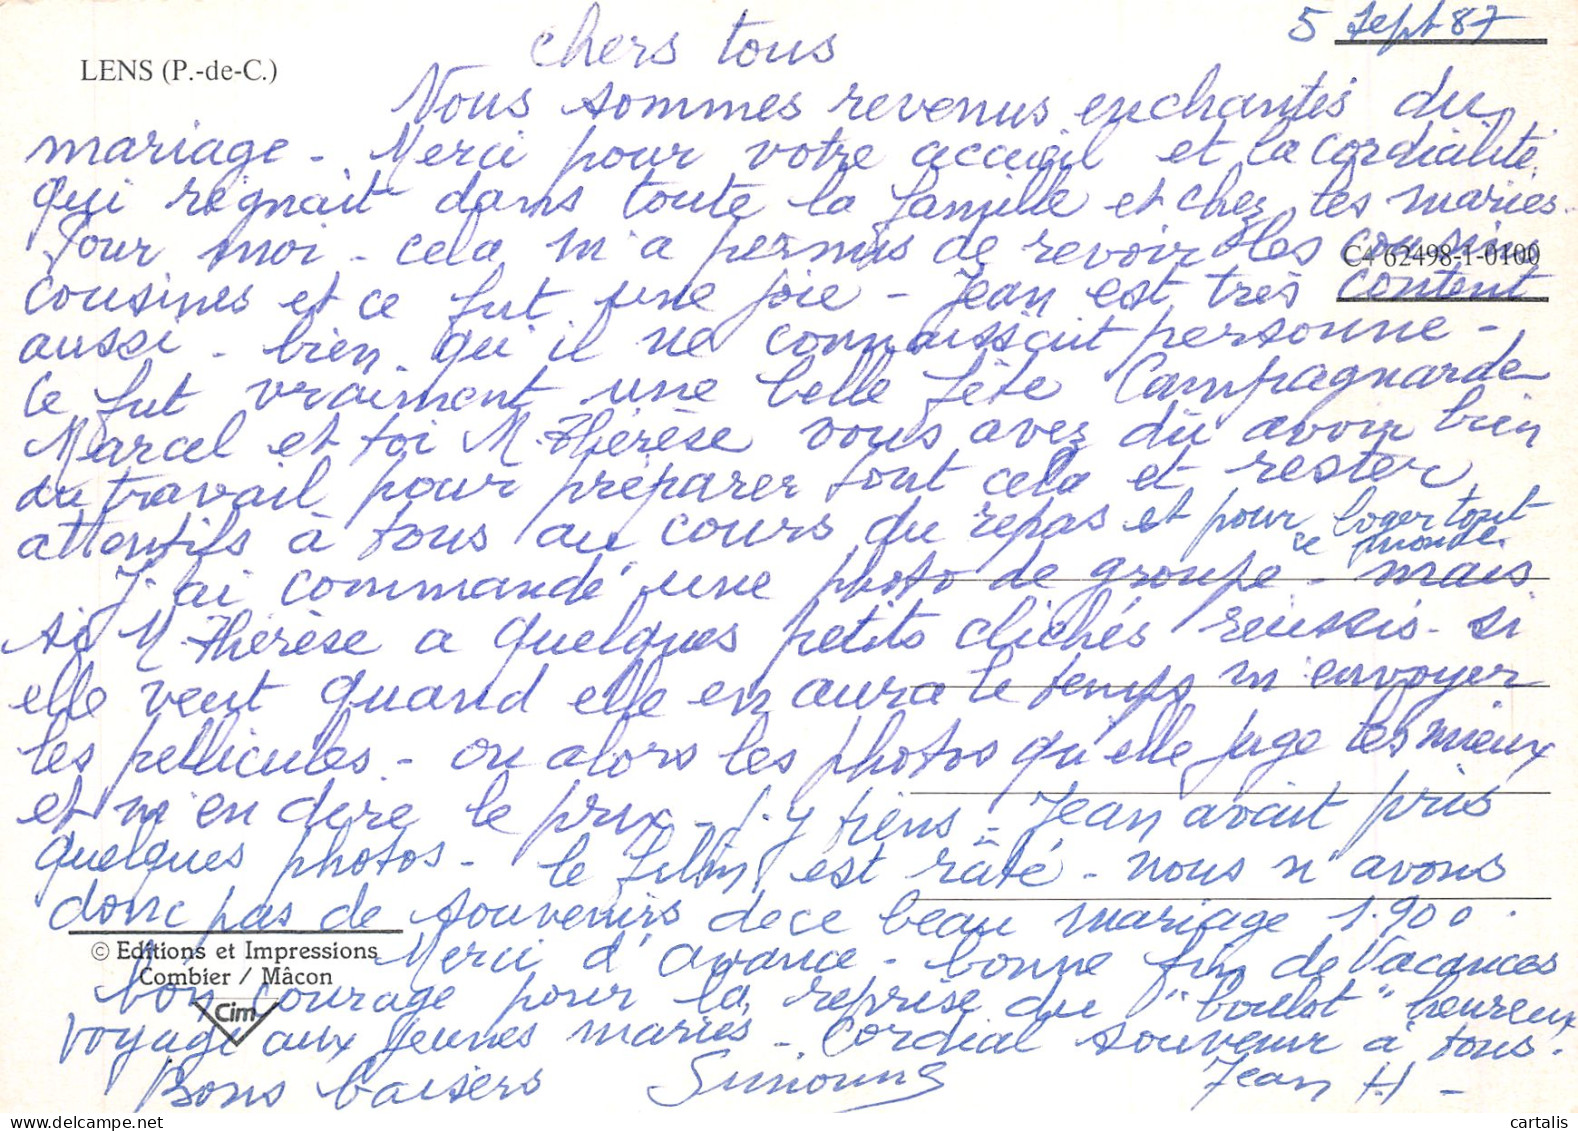 5 Sept 87
LENS (P.-de-C.)
chers tous
Nous sommes revenus enchantés du
mariage - Merci pour votre accueil et la cordialité
qui régnait dans toute la famille et chez les mariés -
Pour moi - cela m'a permis de revoir les cousins
C4 62498-1-0100
cousines et ce fut une joie - Jean est très content
aussi - bien qu'il ne connaissait personne -
Ce fut vraiment une belle fête Campagnarde
Marcel et toi M. Thérèse vous avez dû avoir bien
du travail pour préparer tout cela et rester
attentifs à tous au cours du repas et pour loger tout
ce monde.
J'ai commandé une photo de groupe - mais
si M Thérèse a quelques petits clichés réussis - si
elle veut quand elle en aura le temps m'envoyer
les pellicules - ou alors les photos qu'elle juge les mieux
et m'en dire le prix - j'y tiens - Jean avait pris
quelques photos - le film est râté - nous n'avons
donc pas de souvenirs de ce beau mariage 1.900.
© Editions et Impressions
Combier / Mâcon
Cim
Merci d'avance - bonne fin de Vacances
bon courage pour la reprise du "boulot" heureux
voyage aux jeunes mariés - Cordial souvenir à tous.
Bons baisers Simonne Jean H -
cartalis